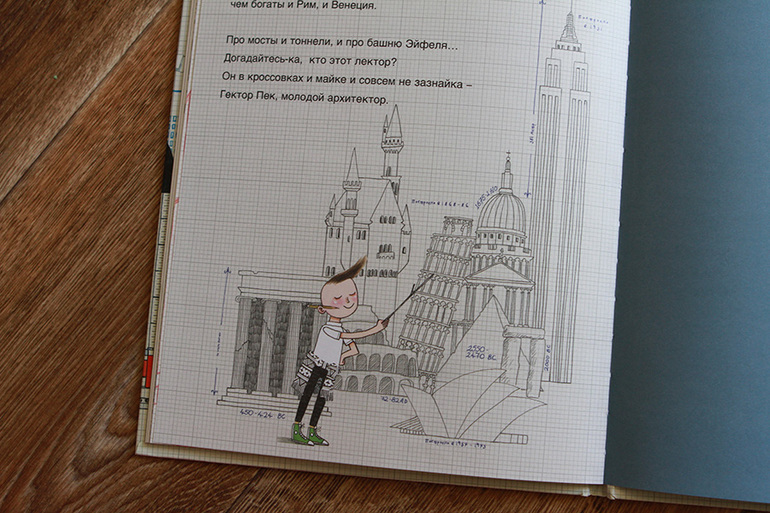 чем богаты и Рим, и Венеция.
Про мосты и тоннели, и про башню Эйфеля…
Догадайтесь-ка, кто этот лектор?
Он в кроссовках и майке и совсем не зазнайка –
Гектор Пек, молодой архитектор.
450-424 BC
72-82 AD
2550-
2470 BC
2000 BC